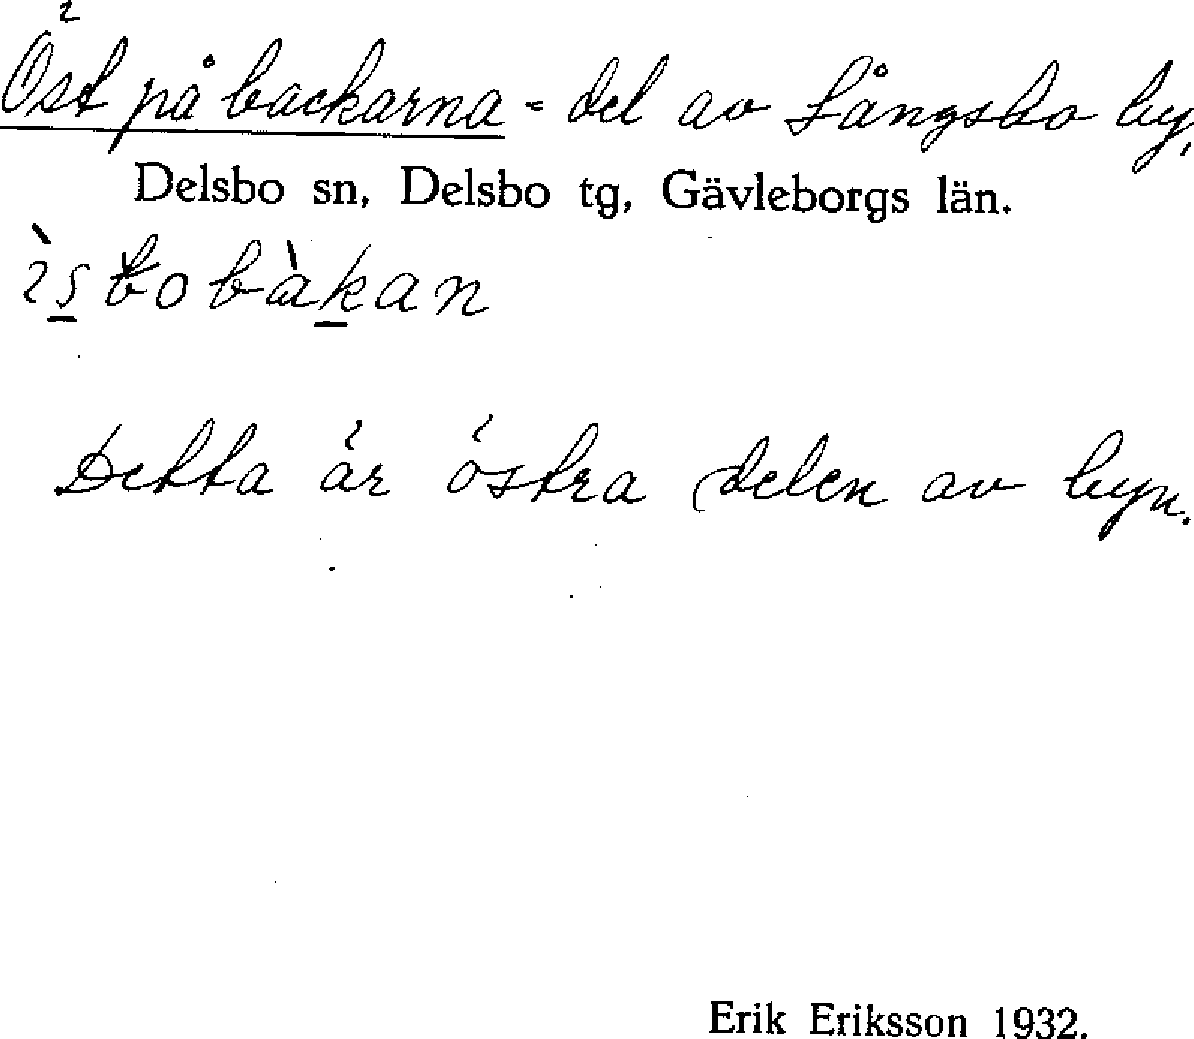 Öst på backarna - del av Långsbo by,
Delsbo sn, Delsbo tg, Gävleborgs län.
Detta är östra delen av byn.
Erik Eriksson 1932.